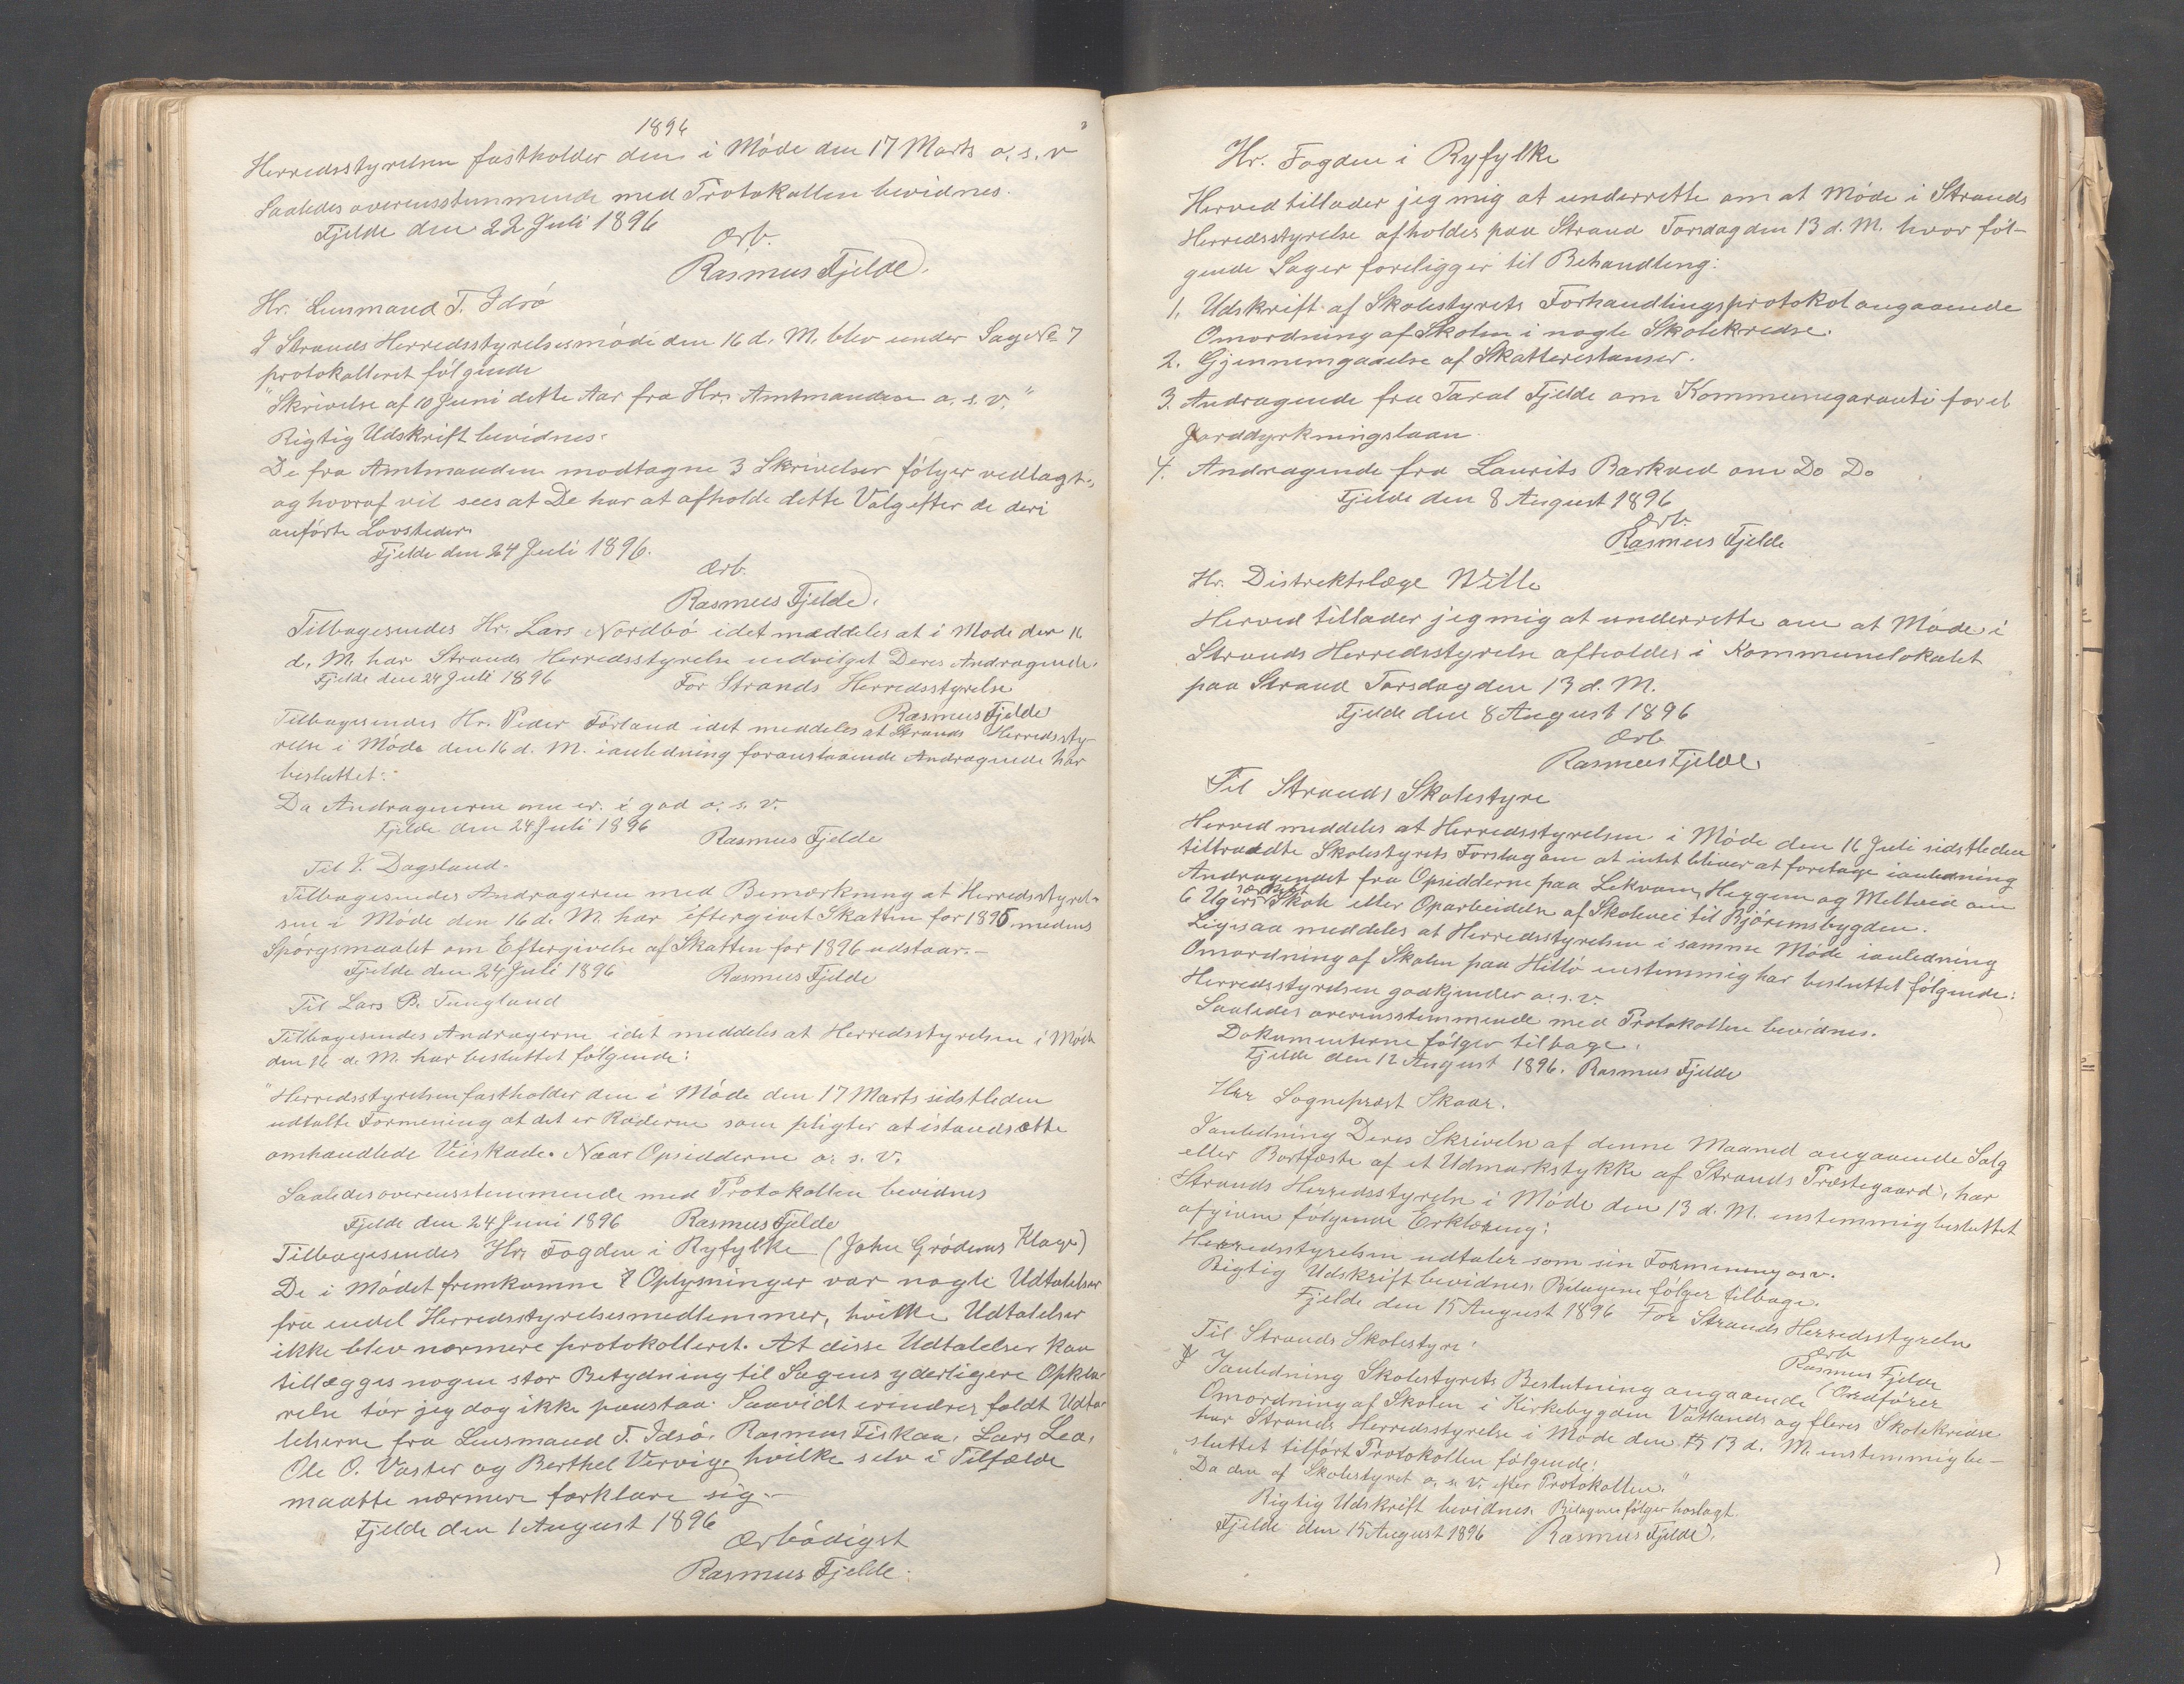 1896
Herredsstyrelsen fastholder den i Möde den 17 Marts o. s. v
Saaledes overensstemmende med Protokollen bevidnes.
Fjelde den 22 Juli 1896
Ærb.
Rasmus Fjelde.
Hr. Lensmand T. Idsö
I Strands Herredsstyrelsesmöde den 16 d. M. blev under Sag No 7
protokolleret fölgende
"Skrivelse af 10 Juni dette Aar fra Hr. Amtmanden o. s. v."
Rigtig Udskrift bevidnes.
De fra Amtmanden modtagne 3 Skrivelser fölger vedlagt,
og hvoraf vil sees at De har at afholde dette Valg efter de deri
anförte Lovsteder.
Fjelde den 24 Juli 1896.
Ærb.
Rasmus Fjelde.
Tilbagesendes Hr. Lars Nordbö idet meddeles at i Möde den 16
d. M. har Strands Herredsstyrelse indvilget Deres Andragende.
Fjelde den 24 Juli 1896 For Strands Herredsstyrelse
Rasmus Fjelde
Tilbagesendes Hr. Peder Förland idet meddeles at Strands Herredssty-
relse i Möde den 16 d. M. ianledning foranstaaende Andragende har
besluttet:
Da Andragerne nu er i god o. s. v.
Fjelde den 24 Juli 1896 Rasmus Fjelde
Til V. Dagsland.
Tilbagesendes Andrageren med Bemærkning at Herredsstyrel-
sen i Möde den 16 d. M. har eftergivet Skatten for 1895 medens
Spörgsmaalet om Eftergivelse af Skatten for 1896 udstaar.-
Fjelde den 24 Juli 1896 Rasmus Fjelde
Til Lars B. Tungland
Tilbagesendes Andragerne idet meddeles at Herredsstyrelsen i Möde
den 16 d. M. har besluttet fölgende:
"Herredsstyrelsen fastholder den i Möde den 17 Marts sidstleden
udtalte Formening at det er Roderne som pligter at istandsætte
omhandlede Veiskade. Naar Opsidderne o. s. v.
Saaledes overensstemmende med Protokollen bevidnes
Fjelde den 24 Juni 1896 Rasmus Fjelde
Tilbagesendes Hr. Fogden i Ryfylke (John Grödems Klage)
De i Mödet fremkomne Oplysninger var nogle Udtalelser
fra endel Herredsstyrelsesmedlemmer, hvilke Udtalelser
ikke blev nærmere protokolleret. At disse Udtalelser kan
tillægges nogen stor Betydning til Sagens yderligere Opkla-
relse tör jeg dog ikke paastaa. Saavidt erindres faldt Udta-
lelserne fra Lensmand T. Idsö, Rasmus Fiskaa, Lars Lea,
Ole O. Vaster og Berthel Vervig, hvilke selv i Tilfælde
maatte nærmere forklare sig.-
Fjelde den 1 August 1896
Ærbödigst
Rasmus Fjelde.
Hr. Fogden i Ryfylke
Herved tillader jeg mig at underrette om at Möde i Strands
Herredsstyrelse afholdes paa Strand Torsdag den 13 d. M. hvor föl-
gende Sager foreligger til Behandling:
1. Udskrift af Skolestyrets Forhandlingsprotokol angaaende
Omordning af Skolen i nogle Skolekredse.
2. Gjennemgaaelse af Skatterestanser.
3. Andragende fra Taral Fjelde om Kommunegaranti for et
Jorddyrkningslaan.
4. Andragende fra Laurits Barkved om Do Do
Fjelde den 8 August 1896
Ærb.
Rasmus Fjelde
Hr. Distriktslæge Wille
Herved tillader jeg mig at underrette om at Möde i
Strands Herredsstyrelse afholdes i Kommunelokalet
paa Strand Torsdag den 13 d. M.
Fjelde den 8 August 1896
Ærb
Rasmus Fjelde.
Til Strands Skolestyre
Herved meddeles at Herredsstyrelsen i Möde den 16 Juli sidstleden
tiltraadte Skolestyrets Forslag om at intet bliver at foretage ianledning
Andragendet fra Opsidderne paa Lekvam, Heggem og Meltveid om
6 Ugers særskilt Skole eller Oparbeidelse af Skolevei til Björemsbygden.
Ligesaa meddeles at Herredsstyrelsen i samme Möde ianledning
Omordning af Skolen paa Hillö enstemmig har besluttet fölgende:
Herredsstyrelsen godkjender o. s. v.
Saaledes overensstemmende med Protokollen bevidnes.
Dokumenterne fölger tilbage.
Fjelde den 12 August 1896. Rasmus Fjelde
Herr Sogneprest Skaar.
Ianledning Deres Skrivelse af denne Maaned angaaende Salg
eller Bortfæste af et Udmarkstykke af Strands Præstegaard, har
Strands Herredsstyrelse i Möde den 13 d. M. enstemmig besluttet
afgivne fölgende Erklæring:
Herredsstyrelsen udtaler som sin Formening osv.
Rigtig Udskrift bevidnes. Bilagene fölger tilbage.
Fjelde den 15 August 1896 For Strands Herredsstyrelse
Ærb
Rasmus Fjelde
(Ordförer
Til Strands Skolestyre
Ianledning Skolestyrets Beslutning angaaende
Omordning af Skolen i Kirkebygden Vatlands og fleres Skolekredse
har Strands Herredsstyrelse i Möde den 13 d. M. enstemmig be-
sluttet tilfört Protokollen fölgende:
"Da den af Skolestyret o. s. v. efter Protokollen."
Rigtig Udskrift bevidnes. Bilagene fölger hoslagt.
Fjelde den 15 August 1896 Rasmus Fjelde.